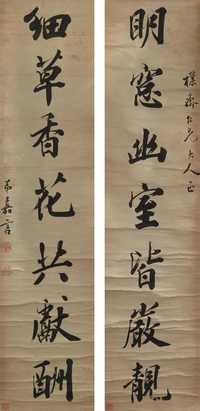 樸齋仁兄大人正
明窓幽室皆嚴靚
細草香花共獻酬
弟嘉言